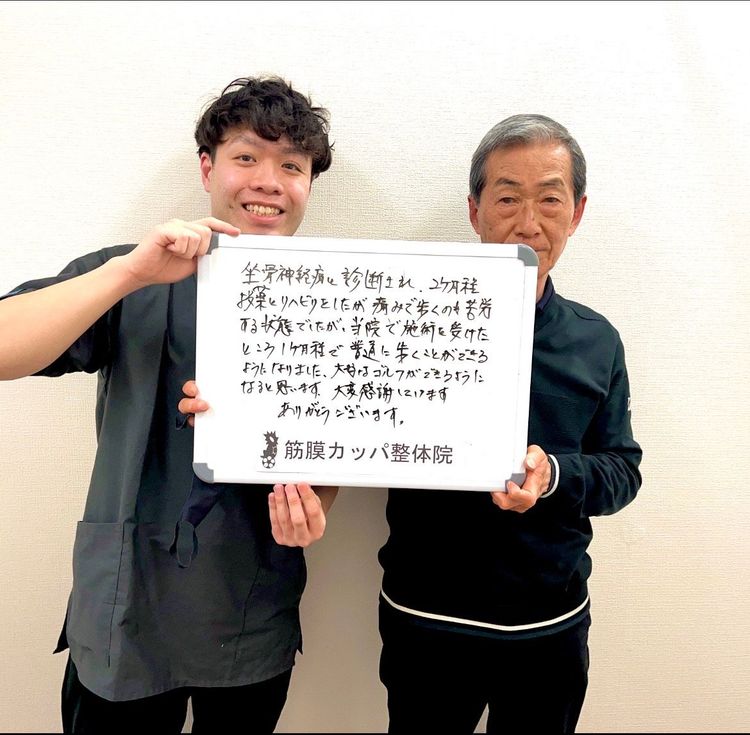 坐骨神経痛と診断され、2ヶ月程
投薬とリハビリをしたが痛みで歩くのも苦労
する状態でしたが、当院で施術を受けた
ところ1ヶ月程で普通に歩くことができる
ようになりました、はゴルフができるように
なると思います。大変感謝しています
ありがとうございます。
筋膜カッパ整体院